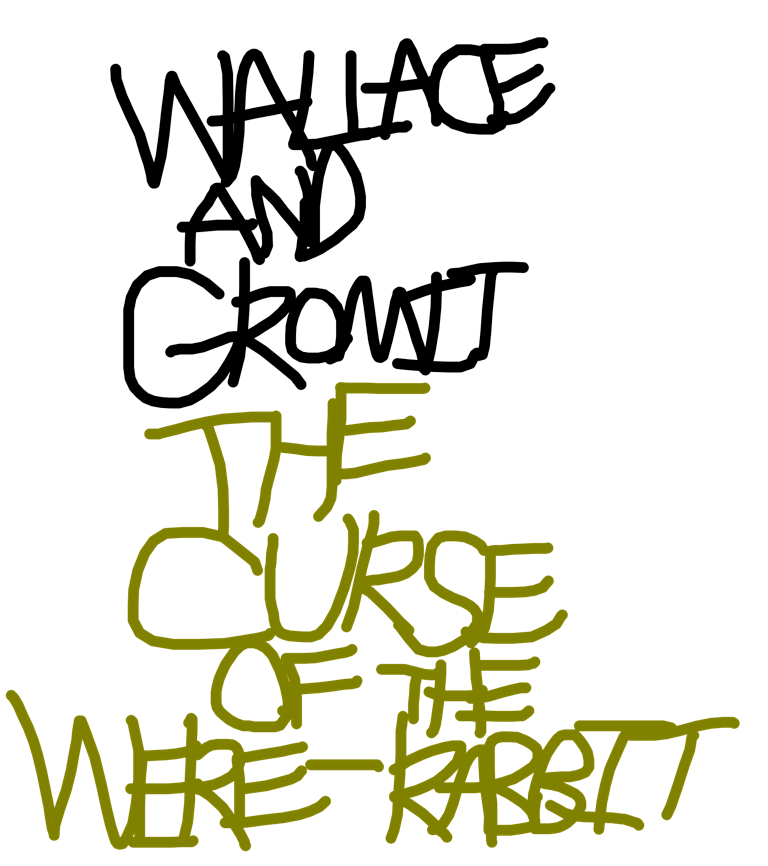 WALLACE
AND
GROMIT
THE
CURSE
OF THE
WERE-RABBIT